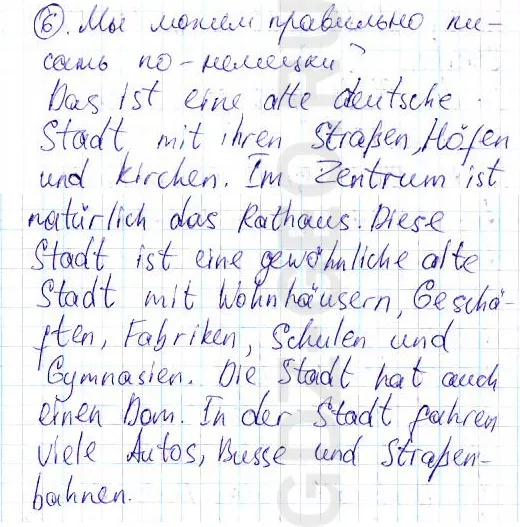 6. Мы можем правильно пи-
сать по-немецки?
Das ist eine alte deutsche
Stadt mit ihren Straßen, Höfen
und Kirchen. Im Zentrum ist
natürlich das Rathaus. Diese
Stadt ist eine gewöhnliche alte
Stadt mit Wohnhäusern, Geschä-
ften, Fabriken, Schulen und
Gymnasien. Die Stadt hat auch
einen Dom. In der Stadt fahren
viele Autos, Busse und Straßen-
bahnen.